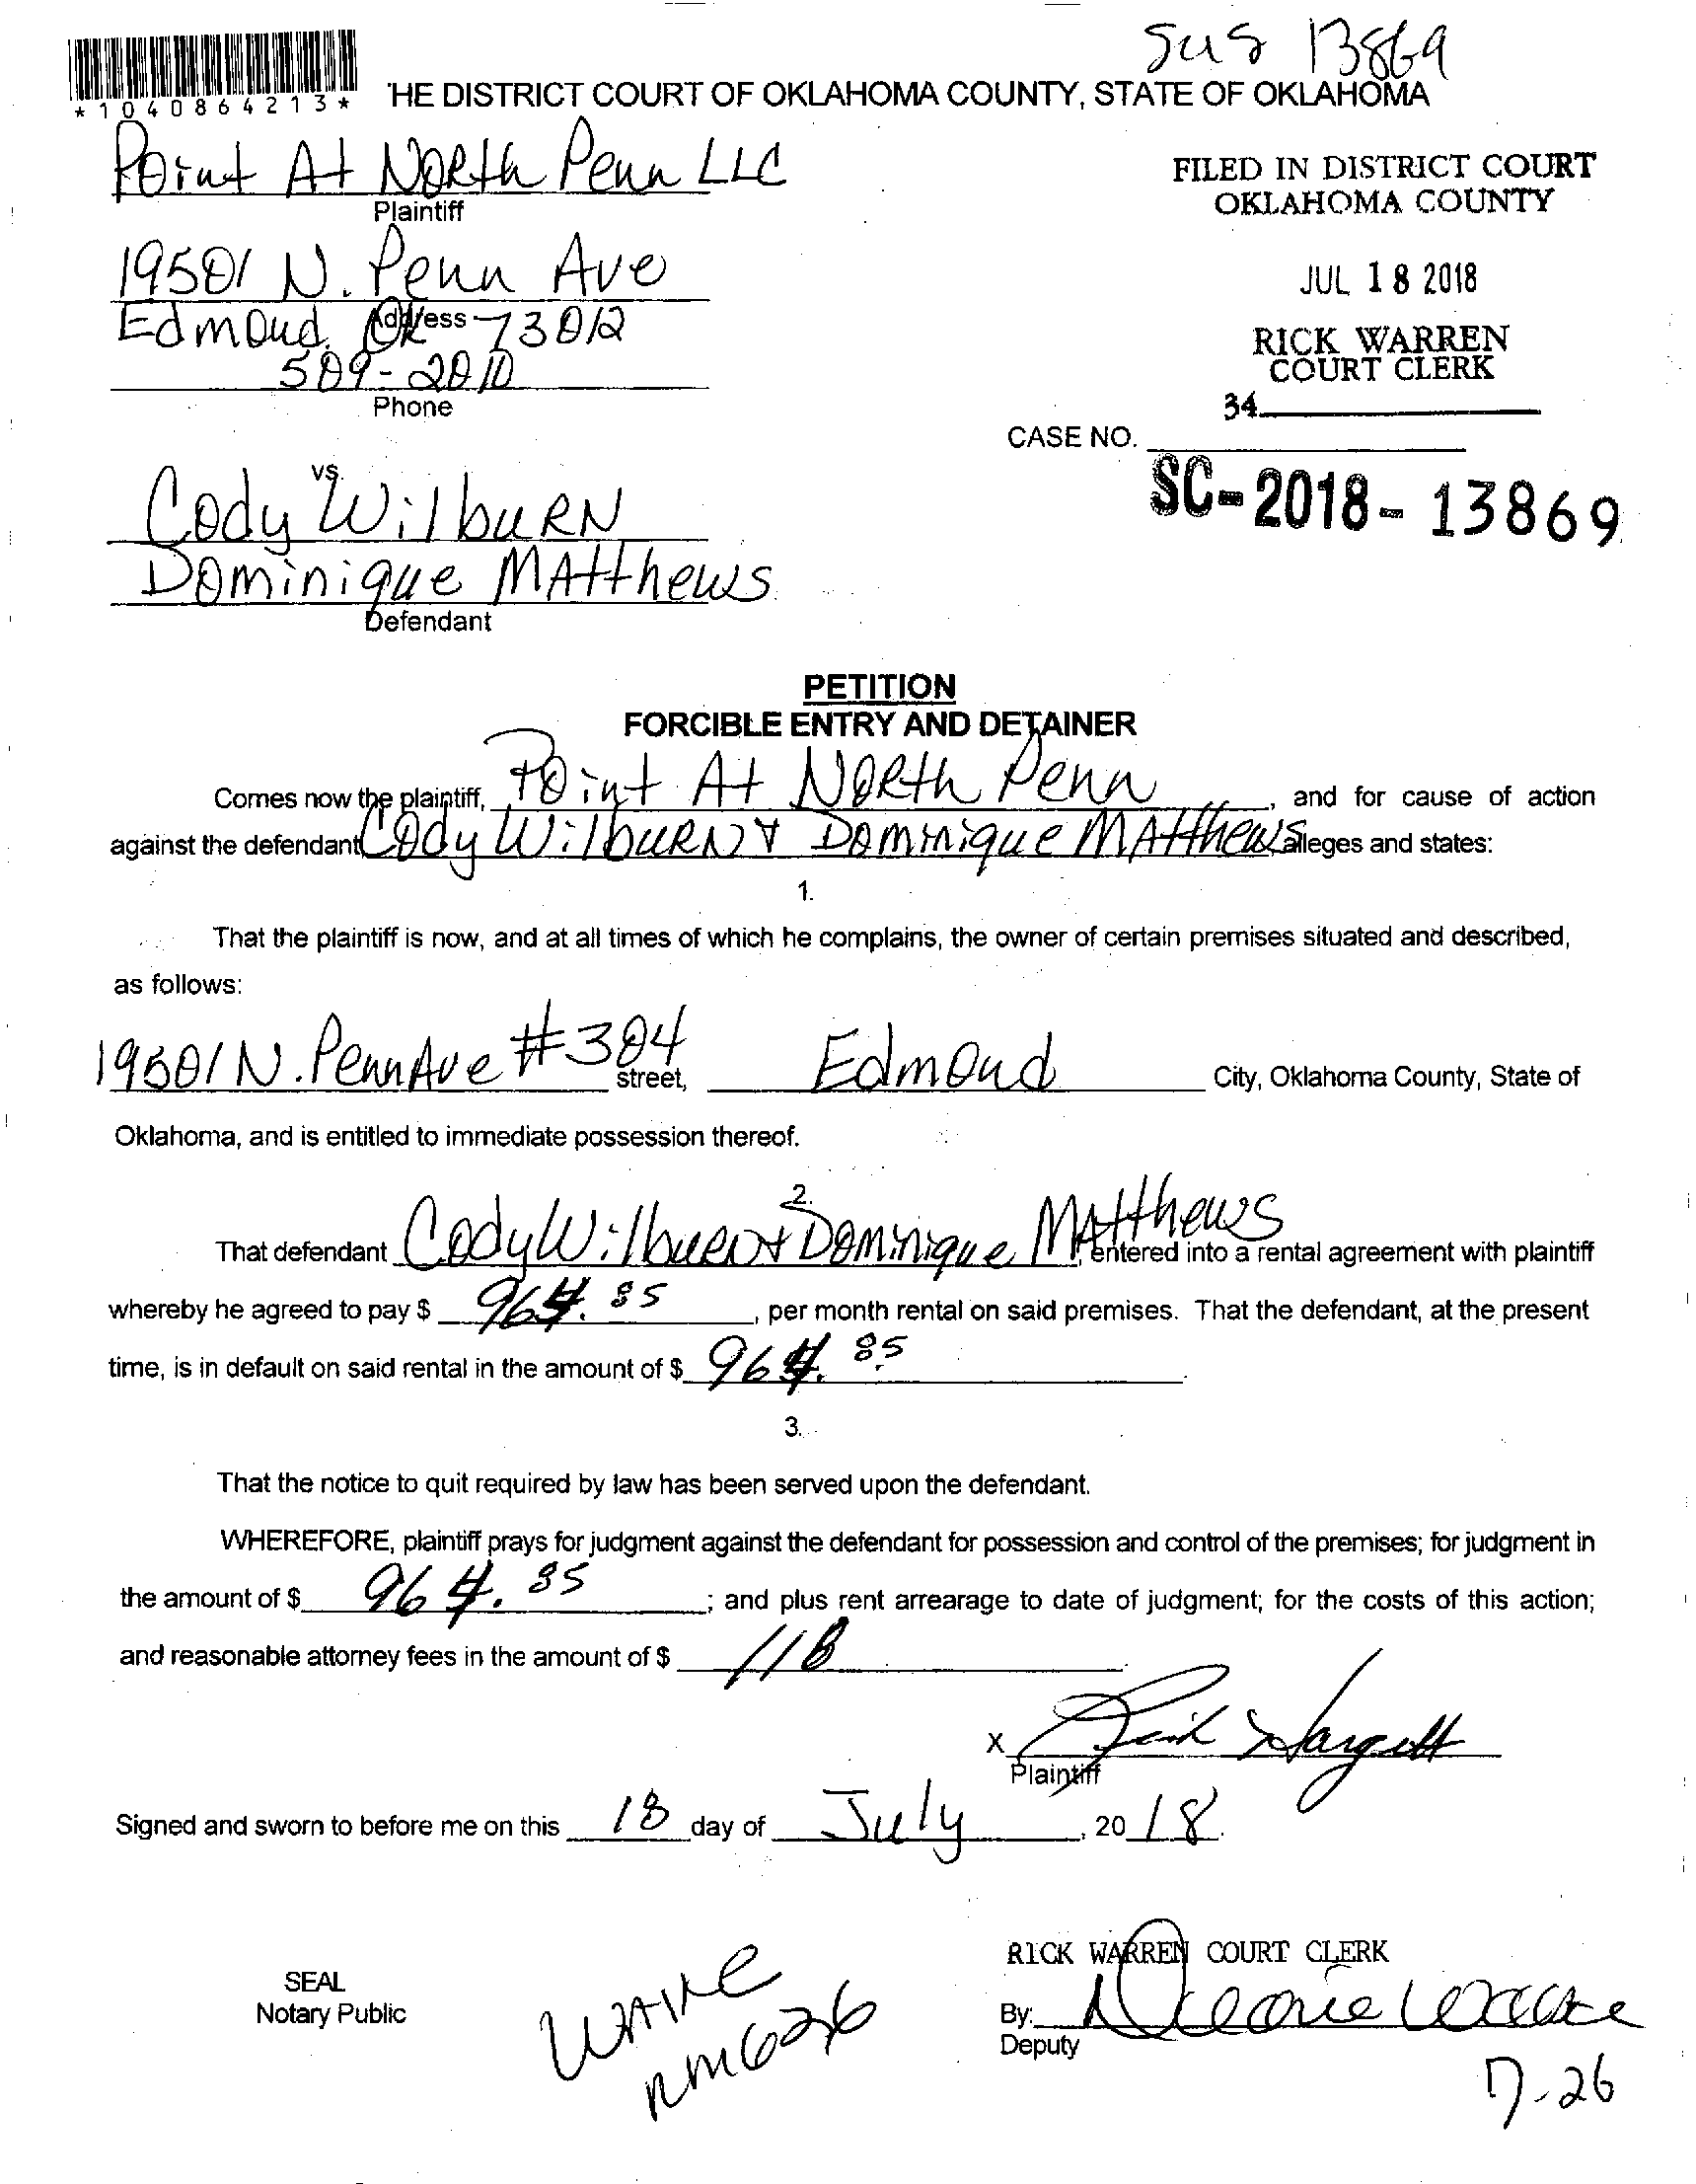 SUS 13869
*1040864213*
'HE DISTRICT COURT OF OKLAHOMA COUNTY, STATE OF OKLAHOMA
Point At North Penn LLC
Plaintiff
FILED IN DISTRICT COURT
OKLAHOMA COUNTY
19501 N. Penn Ave
JUL 18 2018
Address
Edmond, OK 73012
RICK WARREN
COURT CLERK
509-2010
Phone
34
CASE NO.
SC-2018-13869
vs.
Cody Wilburn
Dominique Matthews
Defendant
PETITION
FORCIBLE ENTRY AND DETAINER
Comes now the plaintiff, Point At North Penn, and for cause of action
against the defendant Cody Wilburn & Dominique Matthews alleges and states:
1.
That the plaintiff is now, and at all times of which he complains, the owner of certain premises situated and described,
as follows:
19501 N. Penn Ave #304 street, Edmond City, Oklahoma County, State of
Oklahoma, and is entitled to immediate possession thereof.
2.
That defendant Cody Wilburn & Dominique Matthews, entered into a rental agreement with plaintiff
whereby he agreed to pay $ 964.85, per month rental on said premises. That the defendant, at the present
time, is in default on said rental in the amount of $ 964.85.
3.
That the notice to quit required by law has been served upon the defendant.
WHEREFORE, plaintiff prays for judgment against the defendant for possession and control of the premises; for judgment in
the amount of $ 964.85; and plus rent arrearage to date of judgment; for the costs of this action;
and reasonable attorney fees in the amount of $ 118.
X
Plaintiff
Signed and sworn to before me on this 18 day of July, 2018.
RICK WARREN COURT CLERK
SEAL
Notary Public
By:
Deputy
Waive
Rm 626
7-26